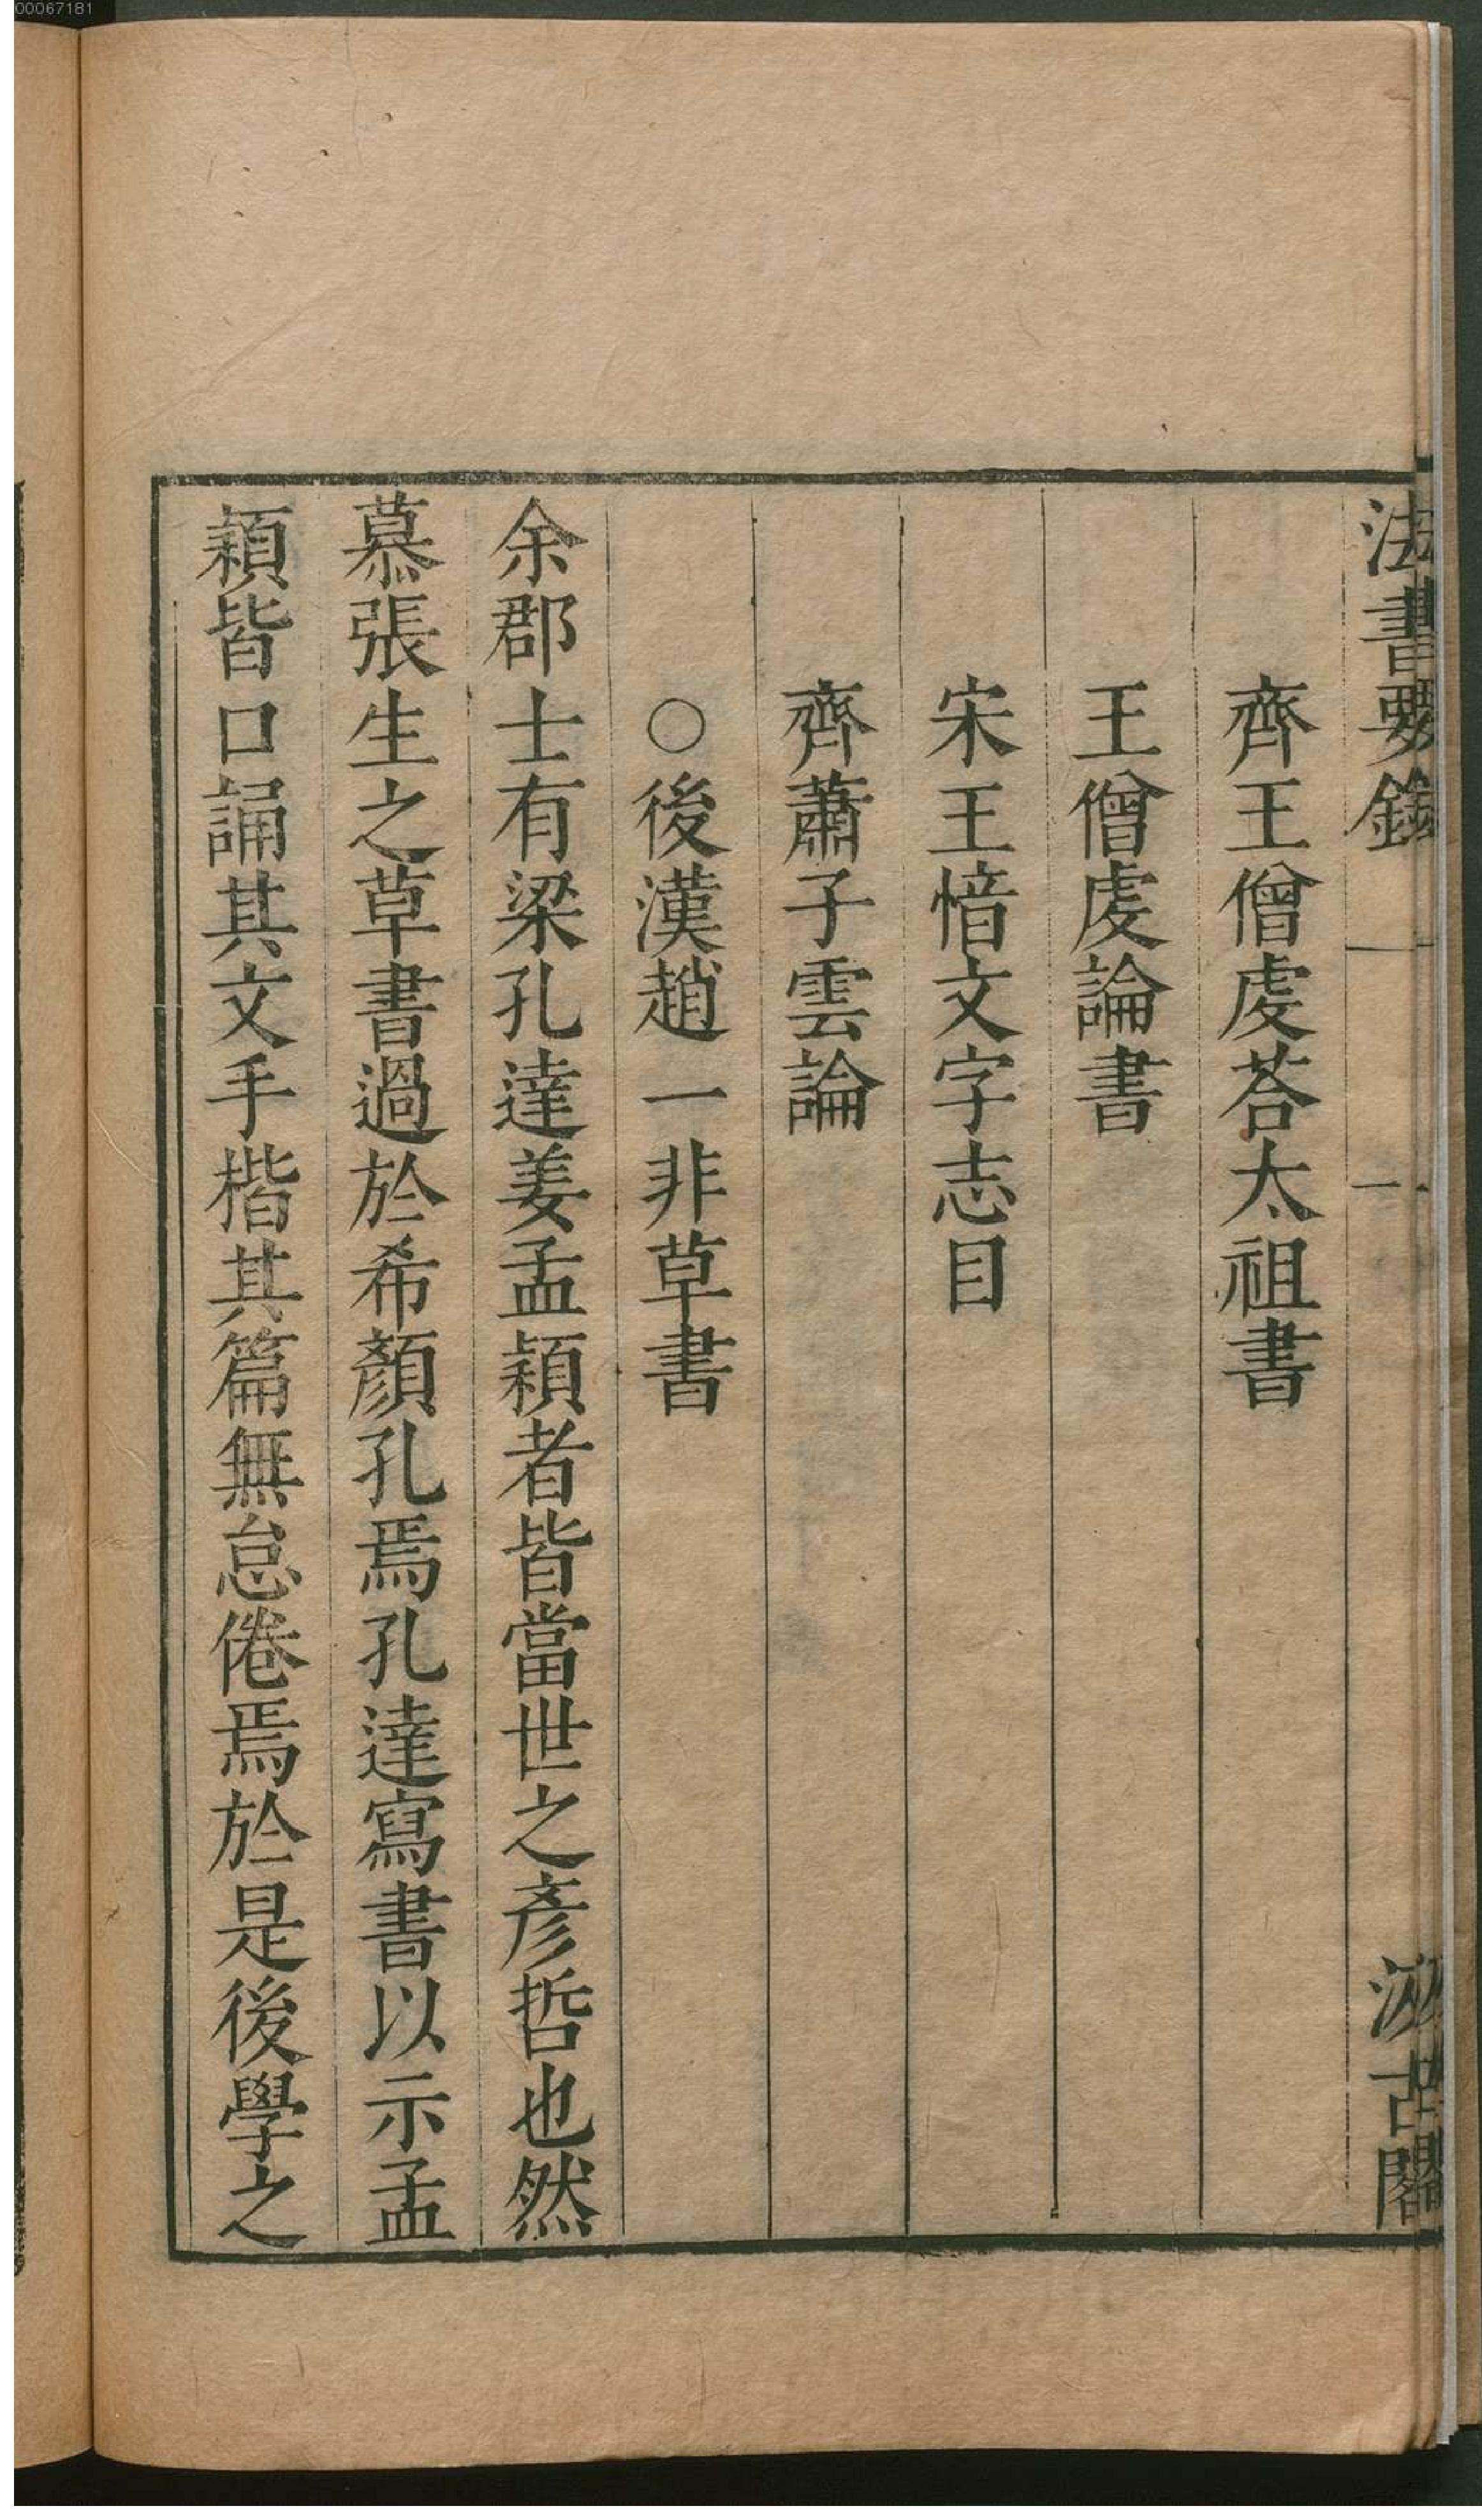 00067181
法書要錄 一 一 汲古閣
齊王僧虔荅太祖書
王僧虔論書
宋王愔文字志目
齊蕭子雲論
○後漢趙一非草書
余郡士有梁孔達姜孟穎者皆當世之彥哲也然
慕張生之草書過於希顏孔焉孔達寫書以示孟
穎皆口誦其文手楷其篇無怠倦焉於是後學之